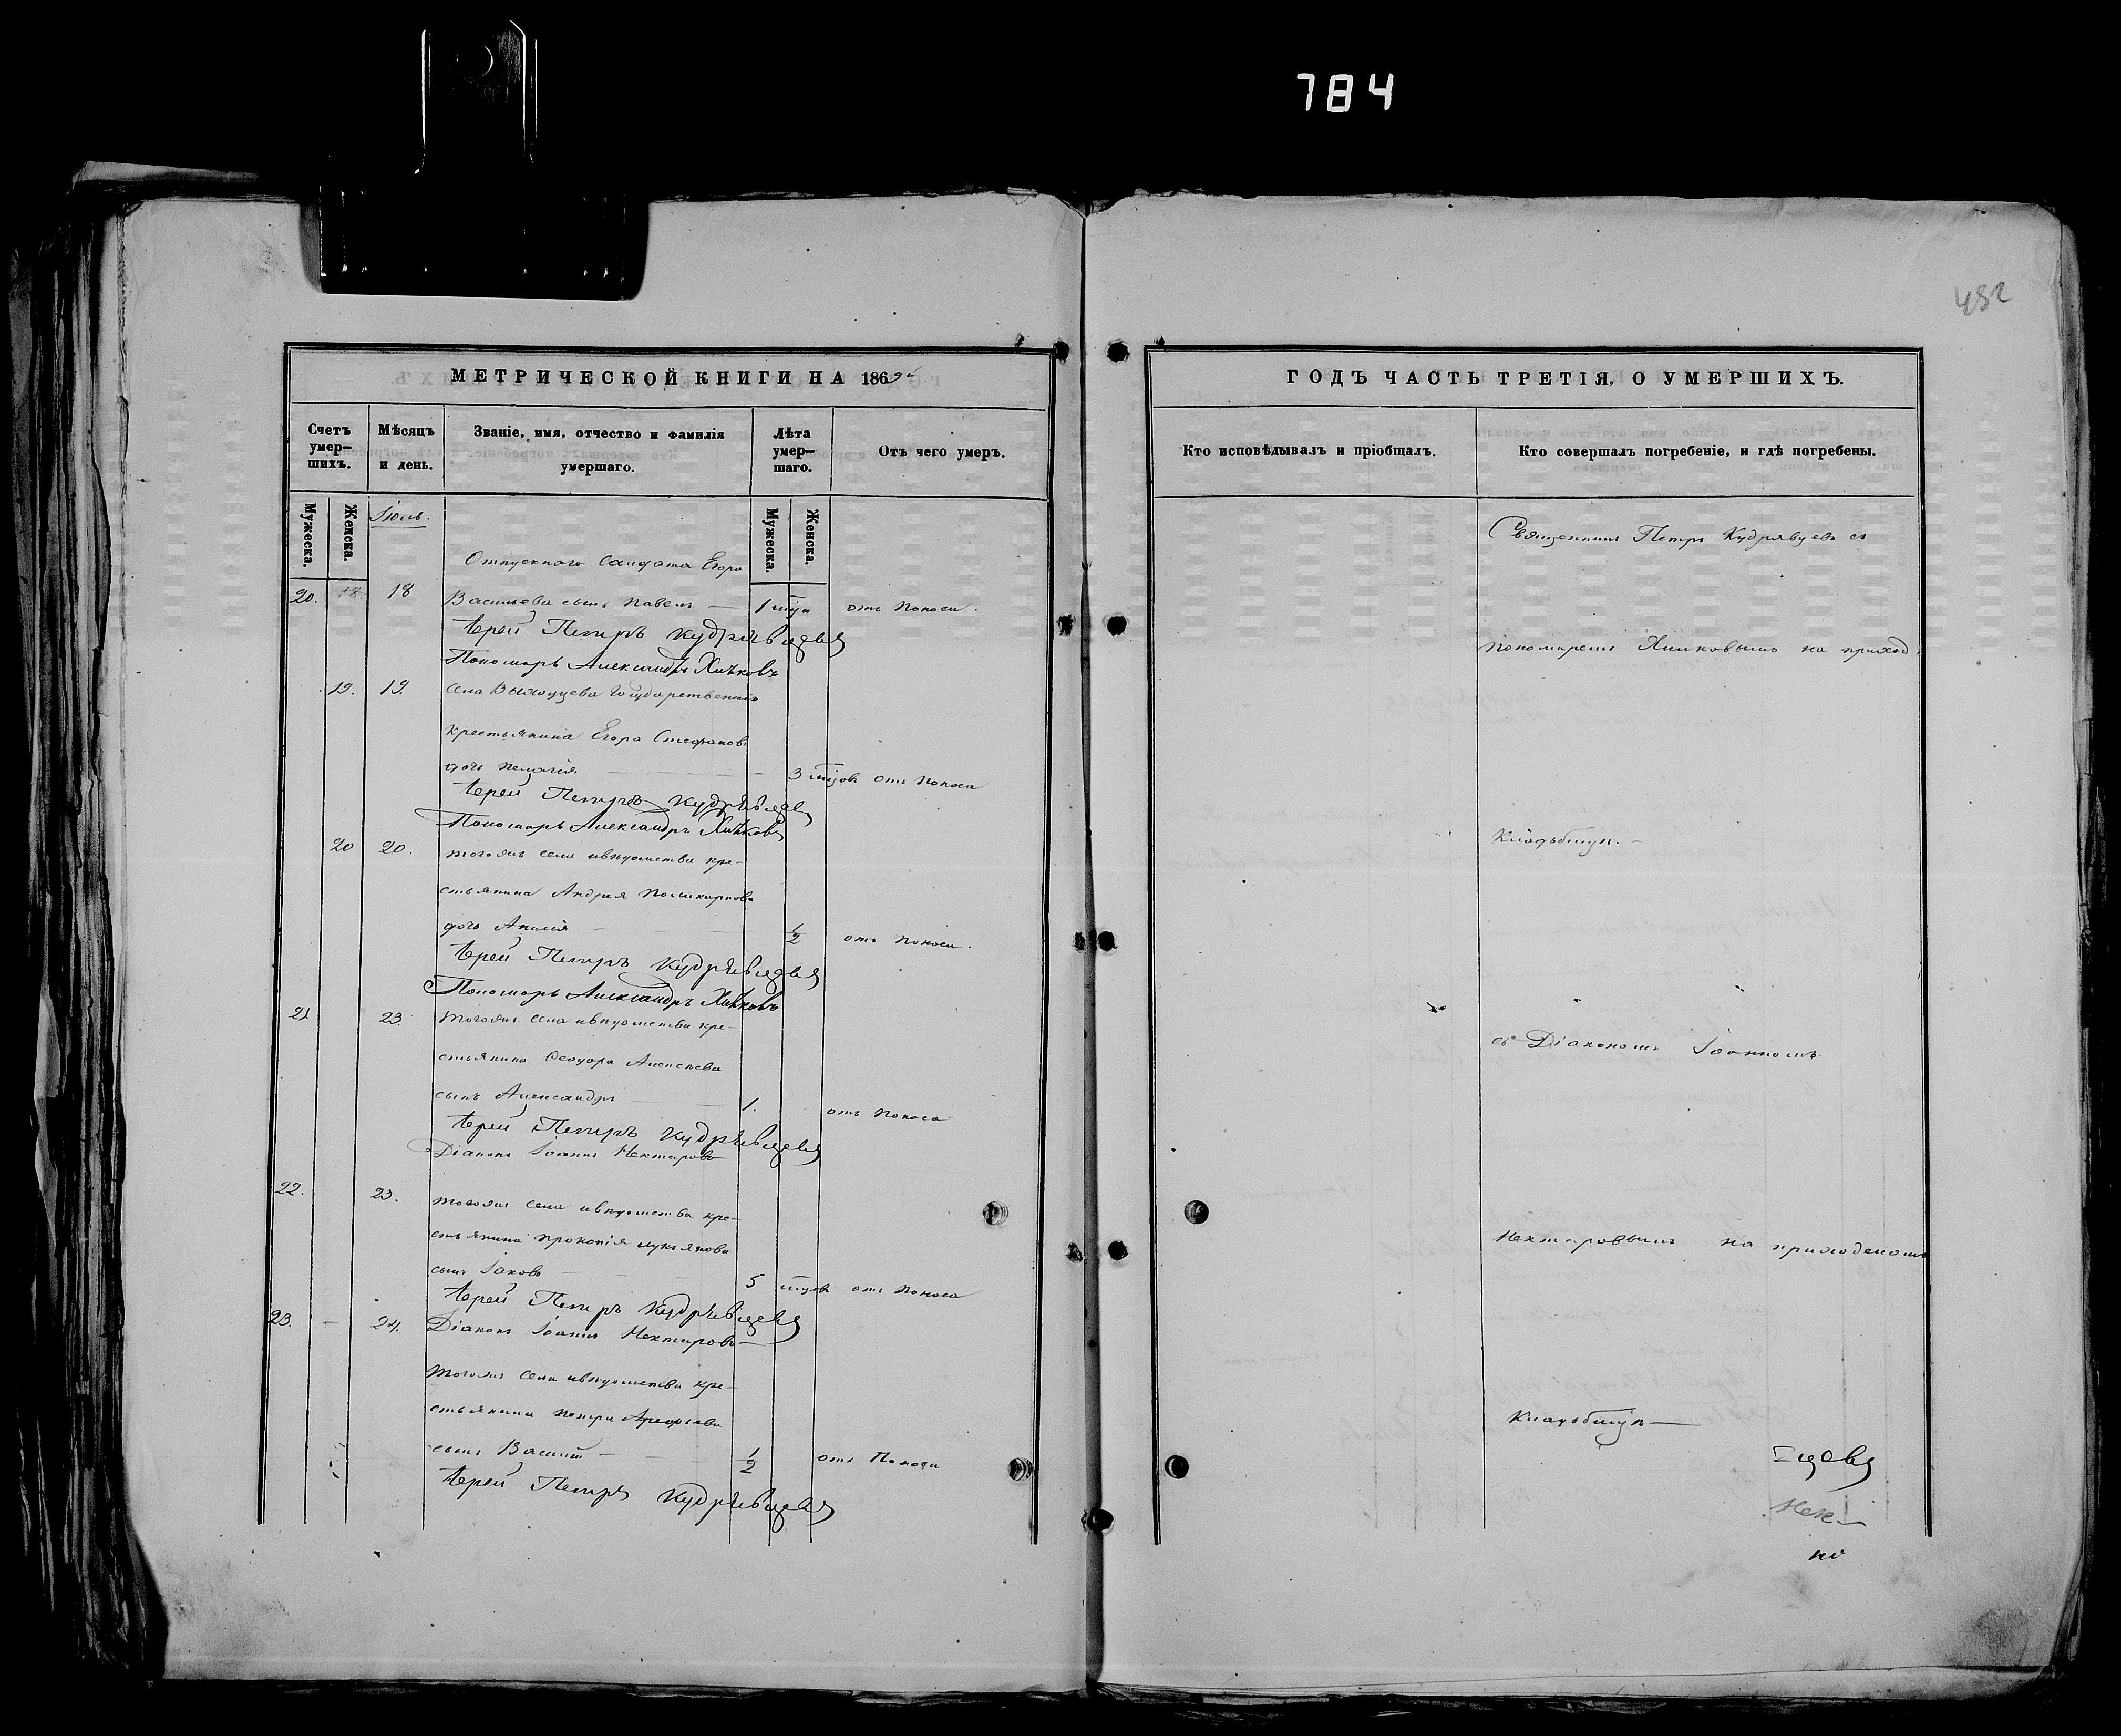 784
452
МЕТРИЧЕСКОЙ КНИГИ НА 1869й
Счетъ умер-шихъ.
Мѣсяцъ и день.
Званіе, имя, отчество и фамилія умершаго.
Лѣта умер-шаго.
Отъ чего умеръ.
Мужеска.
Женска.
Мужеска.
Женска.
Іюль.
Отпускнаго Солдата Егора
20. 18. 18 Васильева сынъ Павелъ — 1 отъ Поноса.
Іерей Петръ Кудрявцевъ
Пономарь Александръ Хилковъ
19. 19. села Государственнаго
крестьянина Егора Стефанова
дочь Пелагія 3 отъ Поноса
Іерей Петръ Кудрявцевъ
Пономарь Александръ Хилковъ
20 20. тогожъ села и вѣдомства кре-
стьянина Андрея Поликарпова
дочь 1/2 отъ Поноса.
Іерей Петръ Кудрявцевъ
Пономарь Александръ Хилковъ
21 23. тогожъ села и вѣдомства кре-
стьянина Ѳеодора Алексѣева
сынъ Александръ 1. отъ Поноса
Іерей Петръ Кудрявцевъ
Діаконъ Іоаннъ Нектаровъ
22. 23. тогожъ села и вѣдомства кре-
стьянина Прокопія Лукьянова
сынъ Іаковъ 5 отъ Поноса
Іерей Петръ Кудрявцевъ
23. — 24. Діаконъ Іоаннъ Нектаровъ
тогожъ села и вѣдомства кре-
стьянина Петра Арефьева
сынъ Василій 1/2 отъ Поноса
Іерей Петръ Кудрявцевъ
ГОДЪ ЧАСТЬ ТРЕТІЯ, О УМЕРШИХЪ.
Кто исповѣдывалъ и пріобщалъ.
Кто совершалъ погребеніе, и гдѣ погребены.
Священникъ Петръ Кудрявцевъ съ
Пономаремъ Хилковымъ на приход.
Кладбищѣ.
съ Діакономъ Іоанномъ
Нектаровымъ на приходскомъ
Кладбищѣ —
цевъ
Нек—